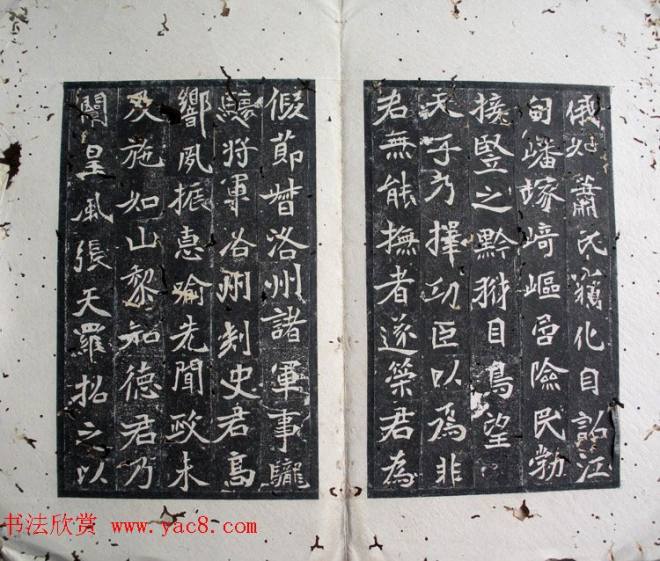 俄如蕭氏獷化自訟江
甸嶓塚崎嶇負險民勃
接豎之黔獄目鳥望
天子乃擇功臣以為非
君無能撫者遂榮君為
假節督洛州諸軍事龍
驤將軍洛州刺史君高
響風振惠喻先聞政未
及施如山黎知德君乃
闡皇風張天羅招之以
书法欣赏 www.yac8.com